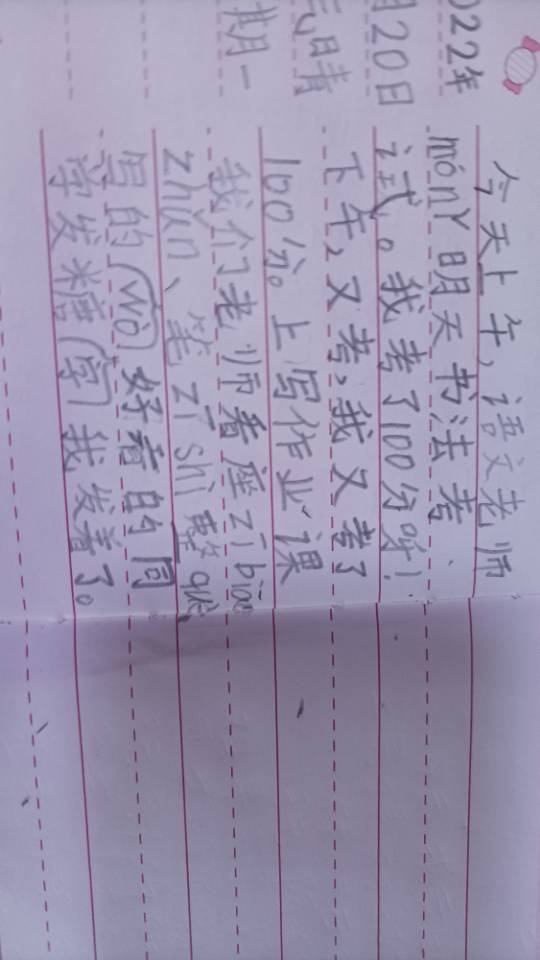 022年
月20日
气日青
其月一
今天上午，语文老师
mónY明天书法考
试。我考了100分呀！
下午，又考，我又考了
100分。上写作业课
我们老师看座zī biāo
zhǔn、笔zī shì整
写的(wò)好看的同
学发糖(字)我发着了。